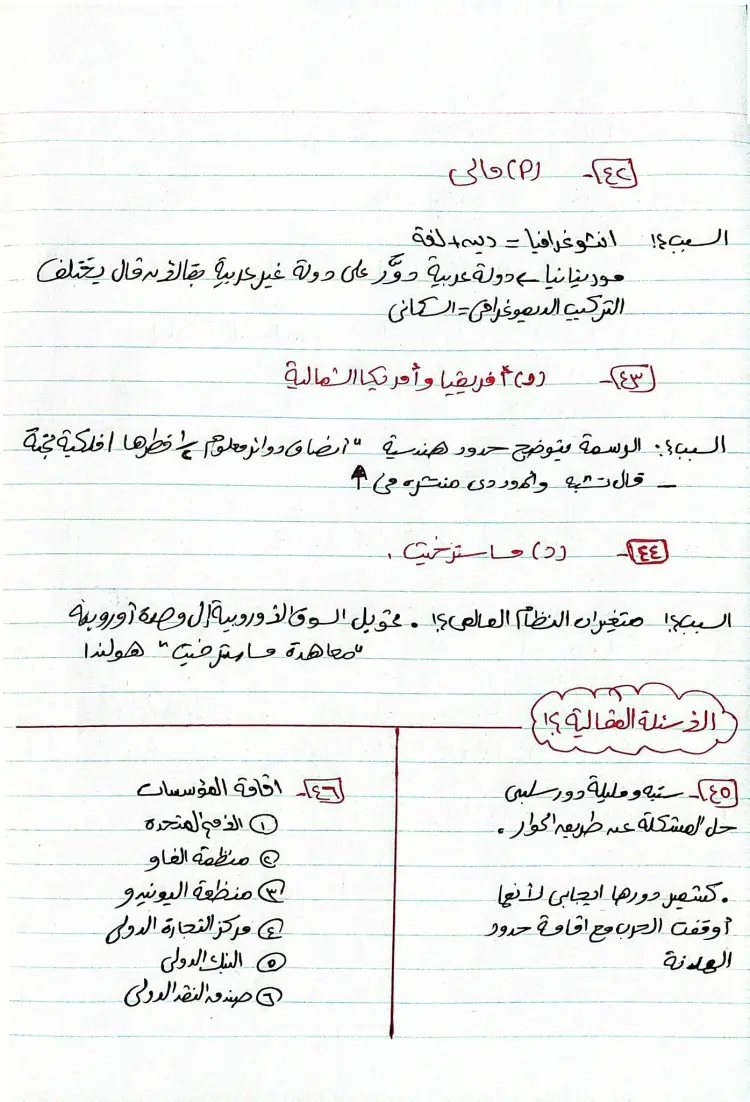 ٤٢- (P) مالى
السبب؟! انثوغرافيا = دين + لغة
موريتانيا ← دولة عربية دوَّر على دولة غير عربية بقالأنه قال يختلف
التركيب الديموغرافى = السكانى
٤٣- (و) أفريقيا وأمريكا الشمالية
السبب؟: الرسمة بتوضح حدود هندسية "أنصاف دوائر معلوم قطرها / فلكية
– قال تشبه والحدود دى منتشره فى ↑
٤٤- (د) ماسترخيت .
السبب؟! متغيرات النظام العالمى؟! . تحويل السوق الأوروبية إلى وحدة أوروبية
"معاهدة ماسترخيت" هولندا
الأسئلة المقالية؟!
٤٥- سبته ومليلة دور سلبى
حل المشكلة عن طريق الحوار .
. كشمير دورها ايجابى لأنها
أوقفت الحرب مع اقامة حدود
الهدنة
٤٦- اقامة المؤسسات
① الأمم المتحدة
② منظمة الفاو
③ منظمة اليونيدو
④ مركز التجارة الدولى
⑤ البنك الدولى
⑥ صندوق النقد الدولى